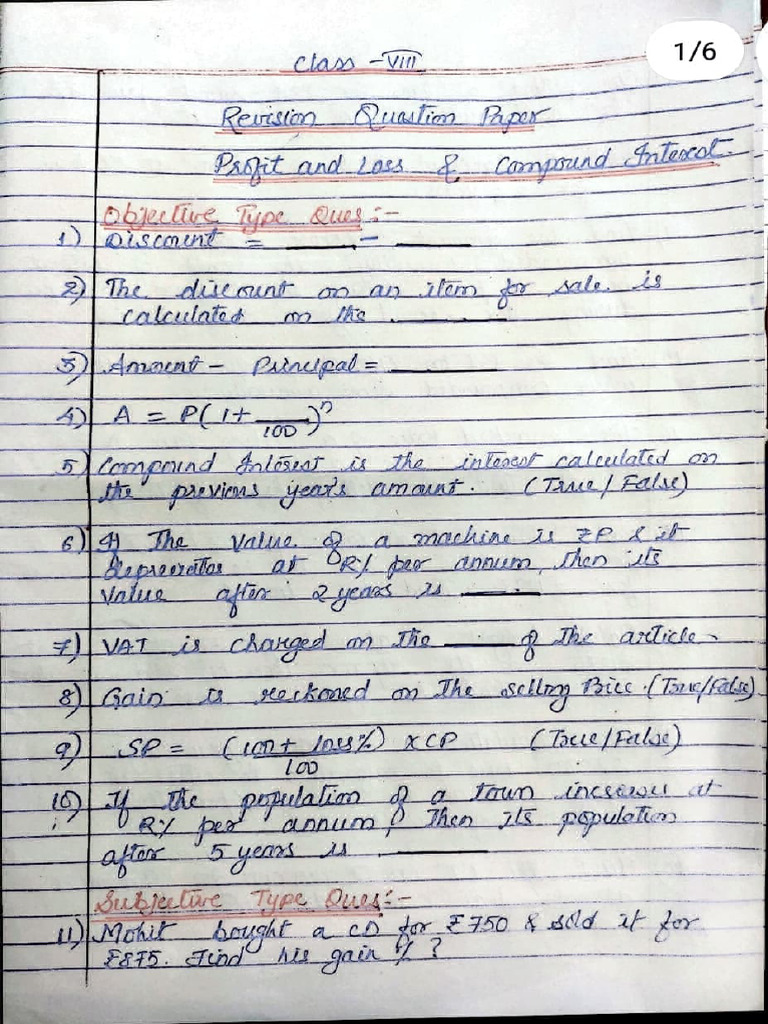 1/6
Class - VIII
Revision Question Paper
Profit and Loss & Compound Interest.
Objective Type Ques :-
1) Discount = ______ - ______
2) The discount on an item for sale is
calculated on the ______
3) Amount - Principal = ______
4) A = P(1 + __/100)ⁿ
5) Compound Interest is the interest calculated on
the previous year's amount. (True/False)
6) If The value of a machine is ₹P & it
depreciates at R% per annum, then its
value after 2 years is ______
7) VAT is charged on the ______ of the article.
8) Gain is reckoned on the selling Price. (True/False)
9) SP = (100 + loss%)/100 × CP (True/False)
10) If the population of a town increases at
R% per annum, then its population
after 5 years is ______
Subjective Type Ques :-
11) Mohit bought a CD for ₹750 & sold it for
₹875. Find his gain % ?